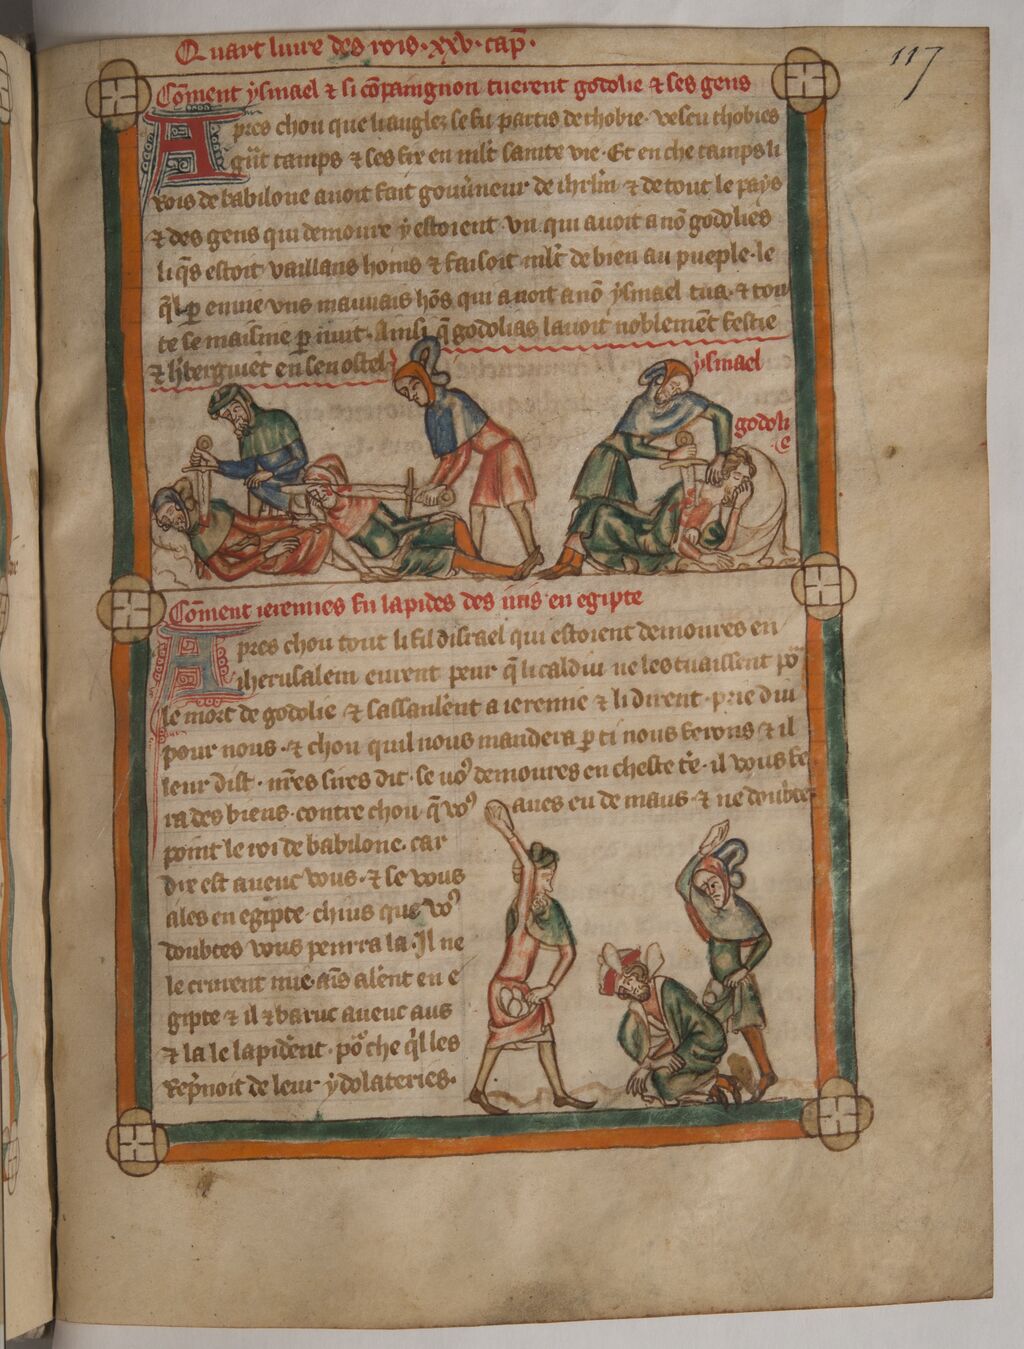 117
Quart liure des rois · xxv · cap̃ ·
Cõment ysmael ⁊ si cõpaingnon tuerent godolie ⁊ ses gens
Apres chou que li angles se fu partis de thobie · vescu thobies
gñt tamps ⁊ ses fix en mlt̃ sainte vie · Et en che tamps li
rois de babilone auoit fait gouũneur de ihrlm̃ ⁊ de tout le pays
⁊ des gens qui demoure y estoient · vn qui auoit a nõ godolies
li q̃s estoit vaillans homs ⁊ faisoit mlt̃ de bien au pueple · le
q̃l p enuie vns mauuais hõs qui auoit a nõ ysmael tua · ⁊ tou
te se maisnie p nuit · Ainsi q̃ godolias lauoit noblemẽt festie
⁊ h̾bergiuet en sen ostel
ysmael
godoli
e
Cõment ieremies fu lapides des iuis en egipte
Apres chou tout li fil disrael qui estoient demoures en
iherusalem eurent peur q̃ li caldiu ne les tuaissent po᷑
le mort de godolie ⁊ sassanlẽt a ieremie ⁊ li dirent · prie diu
pour nous · ⁊ chou quil nous mandera p ti nous ferons ⁊ il
leur dist · nr̃es sires dit · se uo⁹ demoures en cheste tr̃e · il vous fe
ra des biens · contre chou q̃ vo⁹ aues eu de maus · ⁊ ne doubtes
point le roi de babilone · car
dix est aueuc vous · ⁊ se vous
ales en egipte · chius que vo⁹
doubtes vous penrra la · Il ne
le crurent mie · ais̃ alẽt en e
gipte ⁊ il ⁊ baruc aueuc aus
⁊ la le lapidẽnt · po᷑ che q̃l les
rep̃noit de leur ydolateries ·